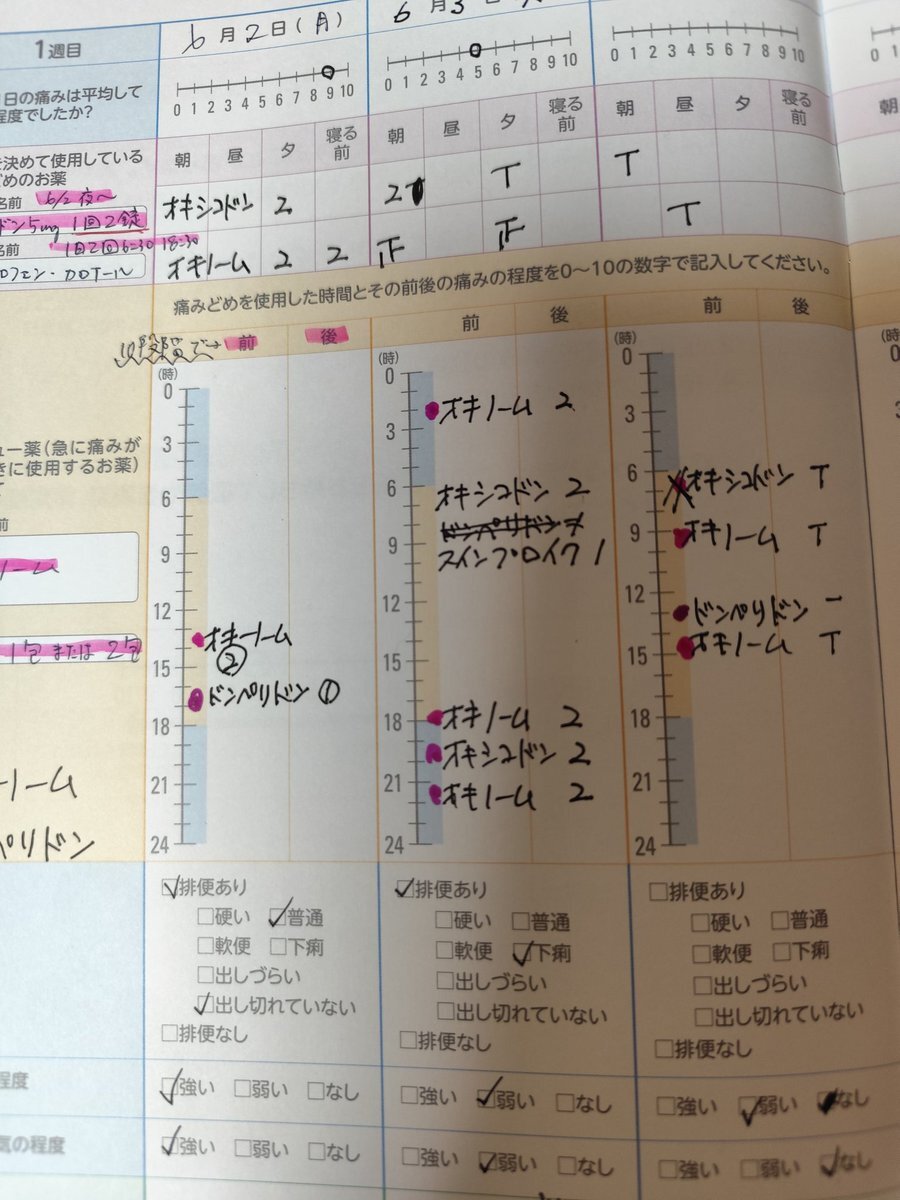 1週目
6月2日(月)
6 月3
0 1 2 3 4 5 6 7 8 9 10
0 1 2 3 4 5 6 7 8 9 10
0 1 2 3 4 5 6 7 8 9 10
日の痛みは平均して
程度でしたか?
朝 昼 夕 寝る前
朝 昼 夕 寝る前
朝 昼 夕 寝る前
朝
を決めて使用している
どめのお薬
名前 6/2 夜〜
ドン5mg 1回2錠
名前 1日2回6:30 18:30
ロフェン・カロナール
オキシコドン 2
2 T
T
T
オキノーム 2 2
正
正
T
痛みどめを使用した時間とその前後の痛みの程度を0〜10の数字で記入してください。
前 後
前 後
前 後
(時)
0
3
6
9
12
15
18
21
24
オキノーム
②
ドンペリドン ①
(時)
0
3
6
9
12
15
18
21
24
オキノーム 2
オキシコドン 2
ドンペリドン
スインプロイク 1
オキノーム 2
オキシコドン 2
オキノーム 2
(時)
0
3
6
9
12
15
18
21
24
オキシコドン T
オキノーム T
ドンペリドン 一
オキノーム T
ュー薬(急に痛みが
きに使用するお薬)
前
ーム
1包または2包
ーム
ペリドン
排便あり
硬い 普通
軟便 下痢
出しづらい
出し切れていない
排便なし
排便あり
硬い 普通
軟便 下痢
出しづらい
出し切れていない
排便なし
排便あり
硬い 普通
軟便 下痢
出しづらい
出し切れていない
排便なし
程度
強い 弱い なし
強い 弱い なし
強い 弱い なし
気の程度
強い 弱い なし
強い 弱い なし
強い 弱い なし